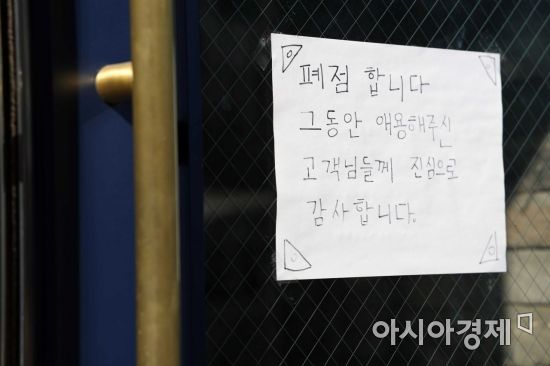 폐점 합니다
그동안 애용해주신
고객님들께 진심으로
감사합니다.
아시아경제